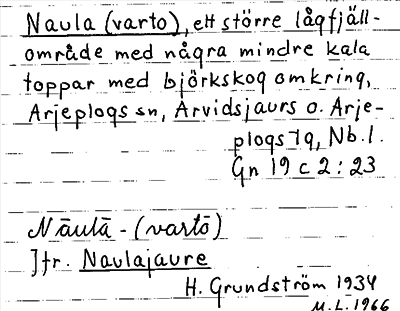 Naula (varto), ett större lågfjäll-
område med några mindre kala
toppar med björkskog omkring,
Arjeplogs sn, Arvidsjaurs o. Arje-
plogs lg, Nb.l.
Gn 19 c 2:23
Nāulā - (vartō)
Jfr. Naulajaure
H. Grundström 1934
M.L. 1966